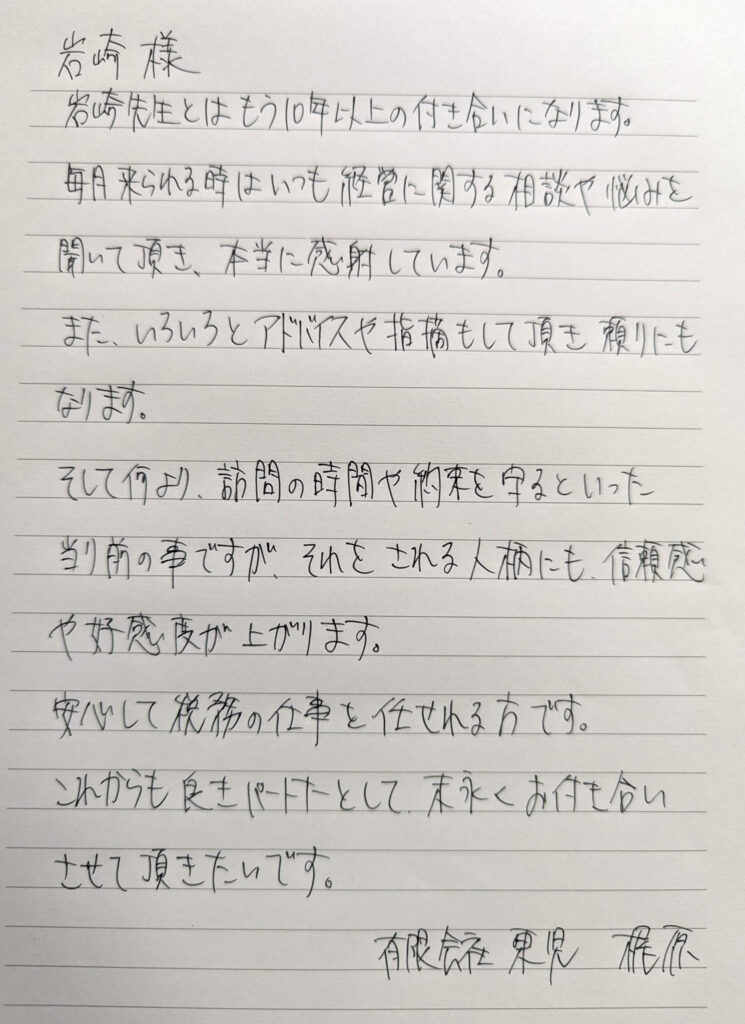 岩崎 様
岩崎先生とはもう10年以上の付き合いになります。
毎月来られる時はいつも経営に関する相談や悩みを
聞いて頂き、本当に感射しています。
また、いろいろとアドバイスや指摘もして頂き頼りにも
なります。
そして何より、訪問の時間や約束を守るといった
当り前の事ですが、それをされる人柄にも、信頼感
や好感度が上がります。
安心して税務の仕事を任せれる方です。
これからも良きパートナーとして、末永くお付き合い
させて頂きたいです。
有限会社 東児 梶原